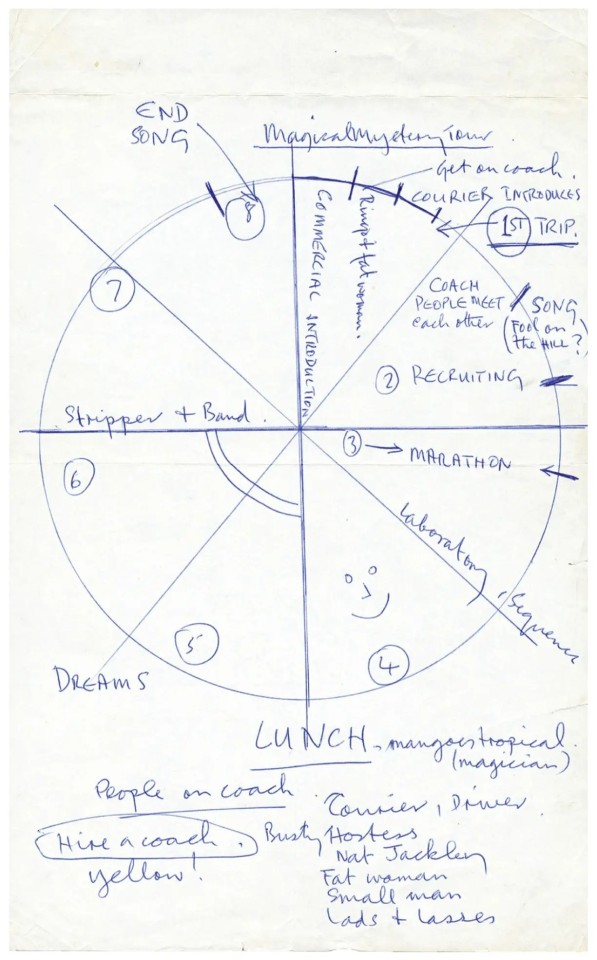 END
SONG
Magical Mystery Tour
Get on coach.
COURIER INTRODUCES
1ST TRIP.
COMMERCIAL INTRODUCTION
Ringo + fat woman.
COACH
PEOPLE MEET
each other
SONG
(Fool on
the HILL?)
2 RECRUITING
3 → MARATHON
Laboratory Sequence
4
5
DREAMS
6
Stripper + Band.
7
8
LUNCH. mangoes tropical.
(magician)
People on coach.
Hire a coach.
yellow!
Courier, Driver.
Busty Hostess
Nat Jackley
Fat woman
Small man
Lads + Lasses